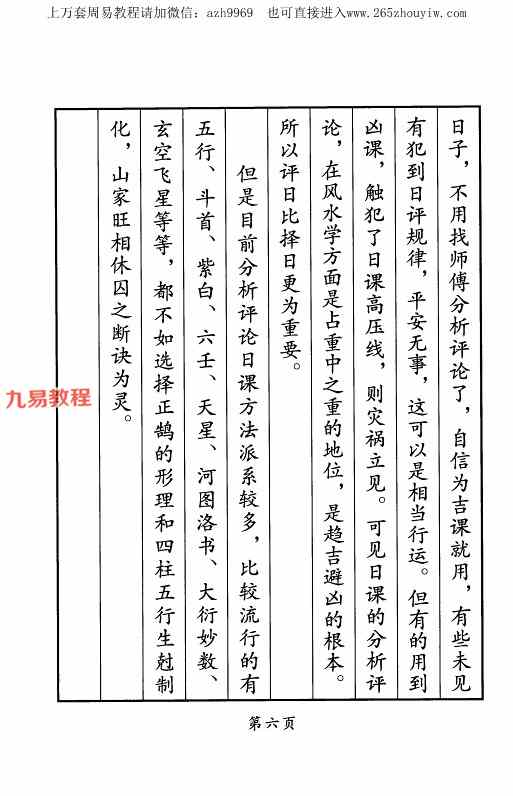 上万套周易教程请加微信：azh9969 也可直接进入www.265zhouyiw.com
日子，不用找师傅分析评论了，自信为吉课就用，有些未见
有犯到日评规律，平安无事，这可以是相当行运。但有的用到
凶课，触犯了日课高压线，则灾祸立见。可见日课的分析评
论，在风水学方面是占重中之重的地位，是趋吉避凶的根本。
所以评日比择日更为重要。
但是目前分析评论日课方法派系较多，比较流行的有
五行、斗首、紫白、六壬、天星、河图洛书、大衍妙数、
玄空飞星等等，都不如选择正鹄的形理和四柱五行生尅制
化，山家旺相休囚之断诀为灵。
九易教程
第六页